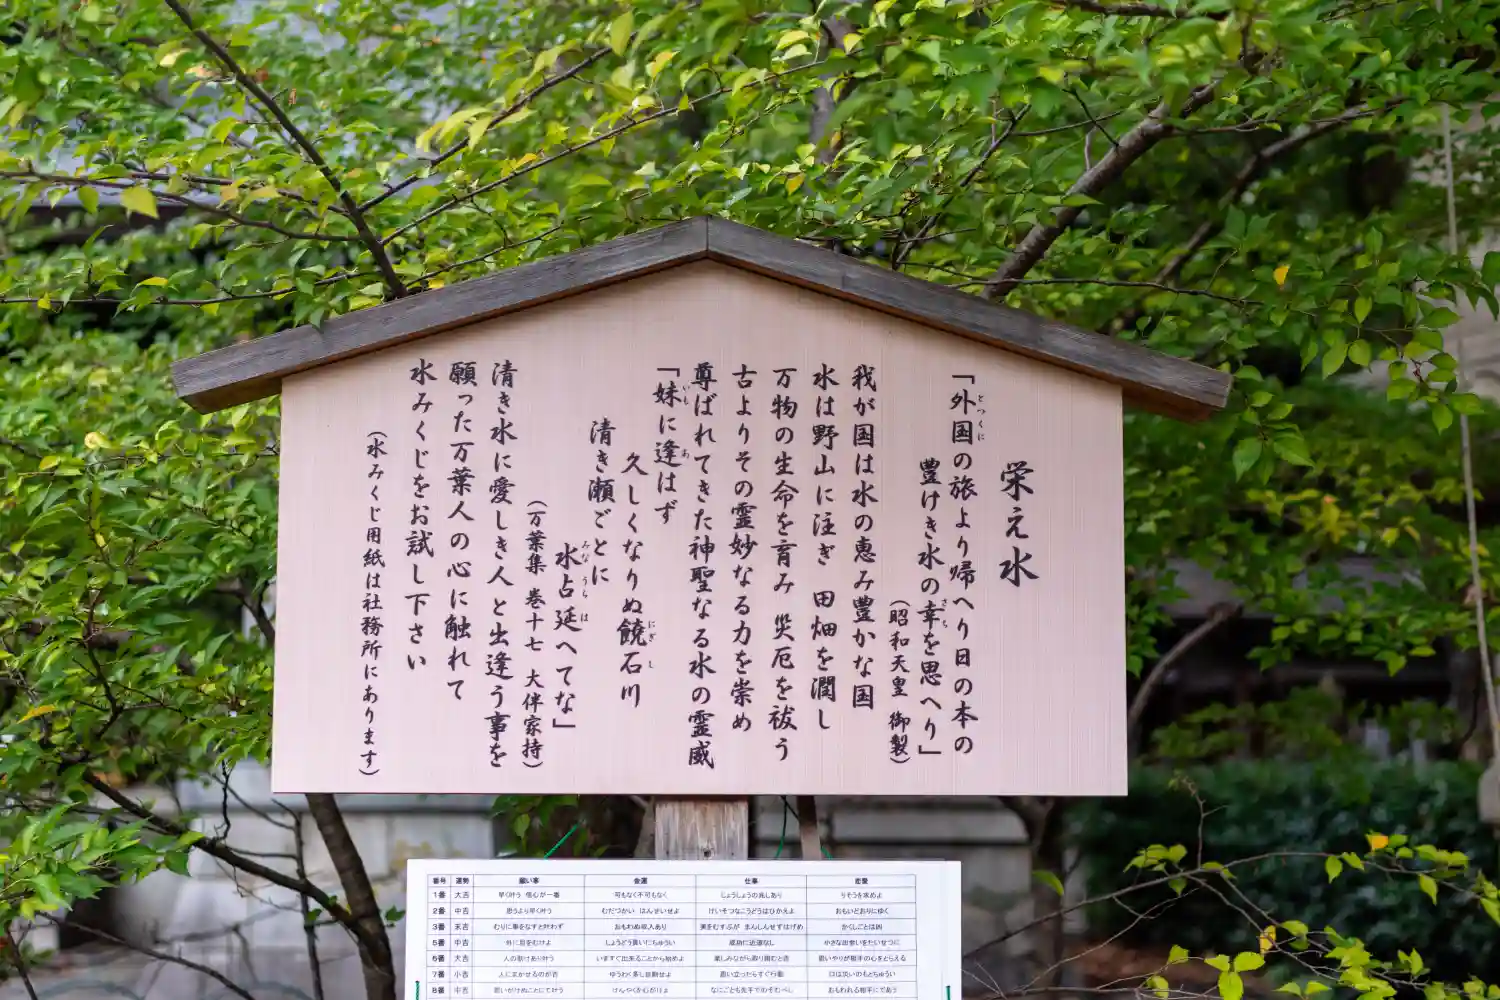 栄え水
「外国の旅より帰へり日の本の
豊けき水の幸を思へり」
(昭和天皇 御製)
我が国は水の恵み豊かな国
水は野山に注ぎ 田畑を潤し
万物の生命を育み 災厄を祓う
古よりその霊妙なる力を崇め
尊ばれてきた神聖なる水の霊威
「妹に逢はず
久しくなりぬ饒石川
清き瀬ごとに
水占延へてな」
(万葉集 巻十七 大伴家持)
清き水に愛しき人と出逢う事を
願った万葉人の心に触れて
水みくじをお試し下さい
(水みくじ用紙は社務所にあります)
番号 運勢 願い事 金運 仕事 恋愛
1番 大吉 早く叶う 信心が一番 可もなく不可もなく しょうしょうの兆しあり りそうを求めよ
2番 中吉 思うより早く叶う むだづかい はんせいせよ けいそつなこうどうはひかえよ おもいどおりにゆく
3番 末吉 むりに事をなすと叶わず おもわぬ収入あり 実をむすぶが まんしんせずはげめ かくしごとは凶
5番 中吉 外に目をむけよ しょうどう買いにちゅうい 成功に近道なし 小さな出会いをたいせつに
6番 大吉 人の助けあり叶う いますぐ出来ることから始めよ 楽しみながら取り組むと吉 思いやりが相手の心をとらえる
7番 小吉 人にまかせるのが吉 ゆうわく多し自制せよ 思い立ったらすぐ行動 口は災いのもとちゅうい
8番 中吉 思いがけぬことにて叶う けんやくを心がけよ なにごとも先手でのぞむべし おもわれる相手にであう